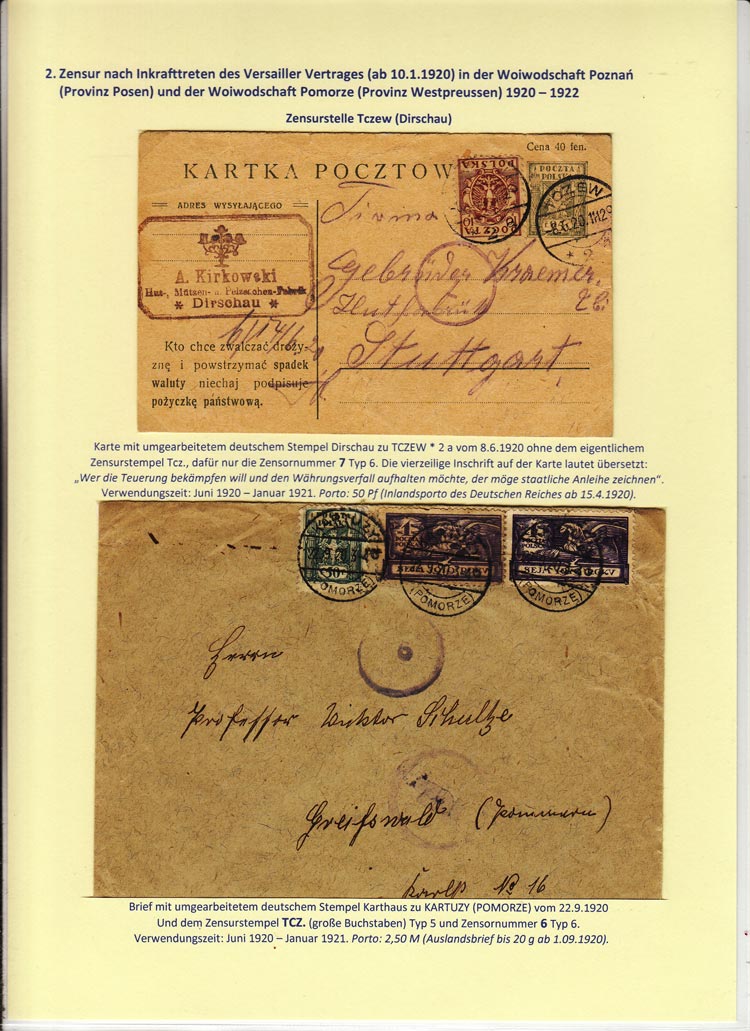 2. Zensur nach Inkrafttreten des Versailler Vertrages (ab 10.1.1920) in der Woiwodschaft Poznań
(Provinz Posen) und der Woiwodschaft Pomorze (Provinz Westpreussen) 1920 – 1922
Zensurstelle Tczew (Dirschau)
Cena 40 fen.
KARTKA POCZTOW
POCZTA
POLSKA
POLSKA
POCZTA
10
TCZEW
8.6.20.11-12
ADRES WYSYŁAJĄCEGO
A. Kirkowski
Hut-, Mützen- u. Pelzsachen-Fabrik
* Dirschau *
Firma
Gebrüder Kraemer
Hutfabrik
Stuttgart
Kto chce zwalczać droży-
znę i powstrzymać spadek
waluty niechaj podpisuje
pożyczkę państwową.
Karte mit umgearbeitetem deutschem Stempel Dirschau zu TCZEW * 2 a vom 8.6.1920 ohne dem eigentlichem
Zensurstempel Tcz., dafür nur die Zensornummer 7 Typ 6. Die vierzeilige Inschrift auf der Karte lautet übersetzt:
„Wer die Teuerung bekämpfen will und den Währungsverfall aufhalten möchte, der möge staatliche Anleihe zeichnen“.
Verwendungszeit: Juni 1920 – Januar 1921. Porto: 50 Pf (Inlandsporto des Deutschen Reiches ab 15.4.1920).
KARTUZY
(POMORZE)
(POMORZE)
(POMORZE)
Herrn
Professor Viktor Schultze
Greifswald (Pommern)
Karlß No 16
Brief mit umgearbeitetem deutschem Stempel Karthaus zu KARTUZY (POMORZE) vom 22.9.1920
Und dem Zensurstempel TCZ. (große Buchstaben) Typ 5 und Zensornummer 6 Typ 6.
Verwendungszeit: Juni 1920 – Januar 1921. Porto: 2,50 M (Auslandsbrief bis 20 g ab 1.09.1920).